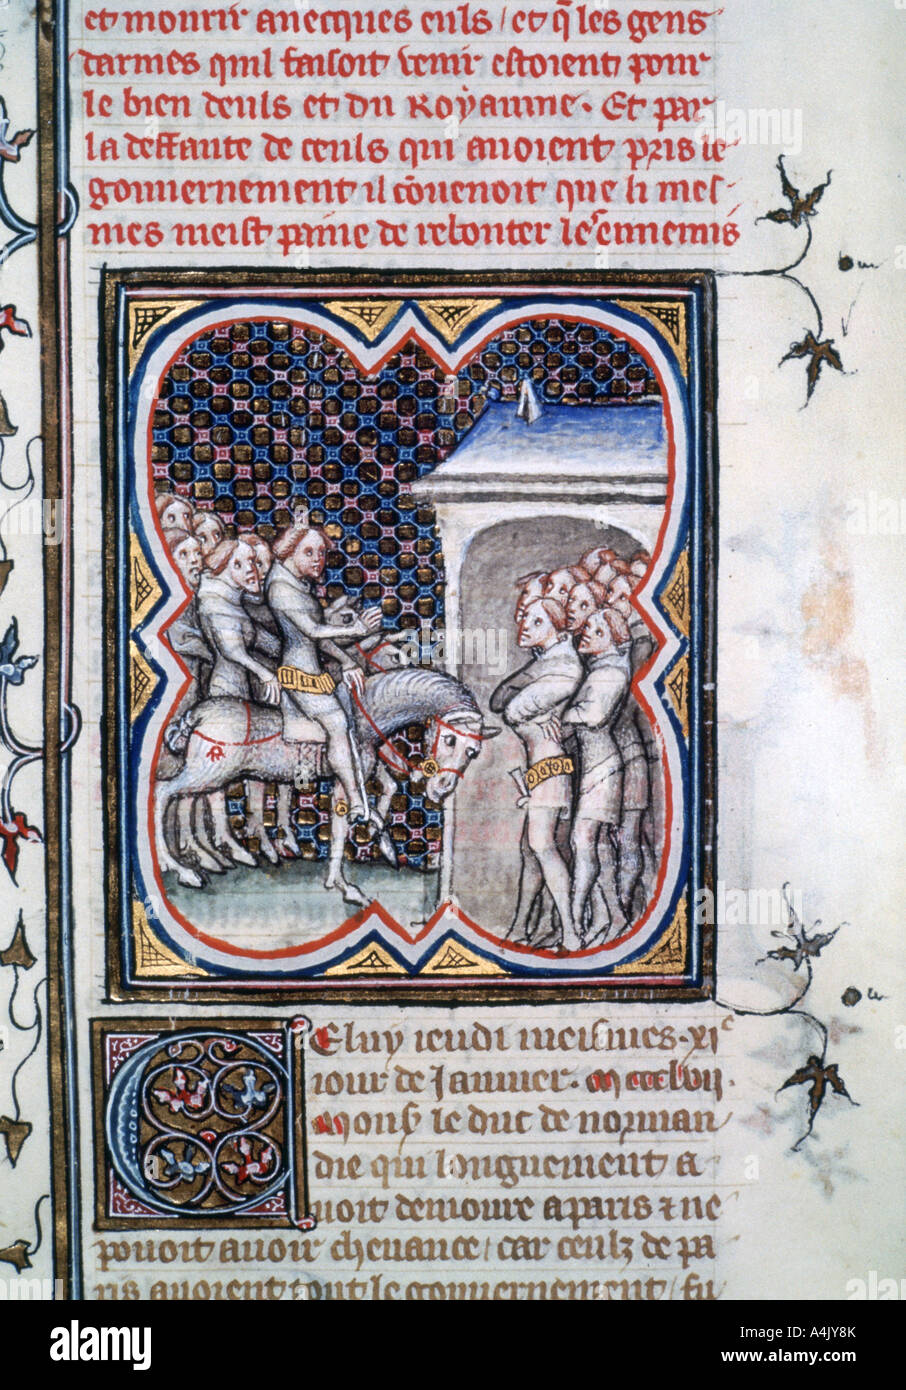 et mourir auecques euls / et q̃ les gens
darmes quil faisoit venir estoient pour
le bien deuls et du Royaume. Et par
la deffaute de ceuls qui auoient pris le
gouuernement il cõuenoit que li mes-
mes meist paine de rebouter leˢ ennemis
Celuy ieudi meismes .xiᵉ
iour de Januier. mccclvii.
Monsʳ le duc de norman
die qui longuement a
uoit demoure a paris ⁊ ne
pouoit auoir cheuance / car ceulz de pa
ris auoient tout le gouuernement / fu
alamy
Image ID: A4JY8K
www.alamy.com